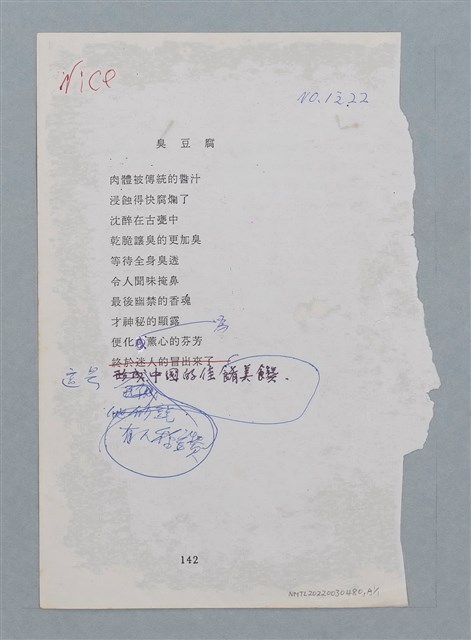 Nice
NO.1222
臭豆腐
肉體被傳統的醬汁
浸蝕得快腐爛了
沈醉在古甕中
乾脆讓臭的更加臭
等待全身臭透
令人聞味掩鼻
最後幽禁的香魂
才神秘的顯露
便化成薰心的芬芳
終於迷人的冒出來了
這是
中國的佳餚美饌.
有人稱讚
142
NMTL20220030480,A/1